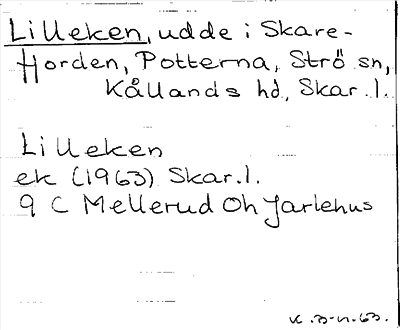 Lilleken, udde i Skare-
Horden, Potterna, Strö sn,
Kållands hd, Skar.l.
Lilleken
ek (1963) Skar.l.
9 C Mellerud Oh Jarlehus